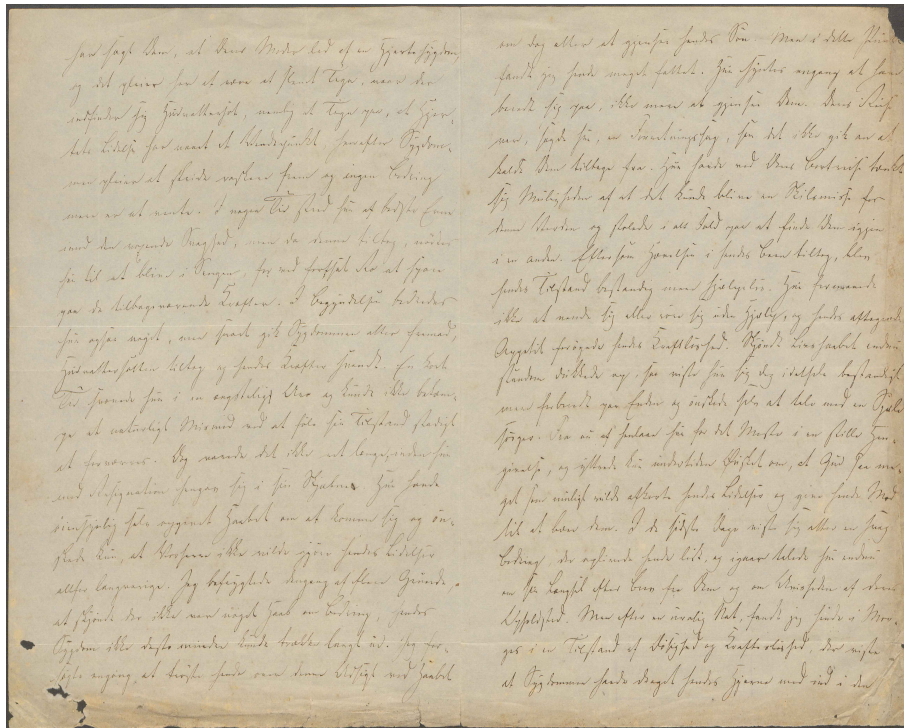 har sagt Dem, at Deres Moder led af en Hjertesygdom,
og det pleier her at være et slemt Tegn, naar der
indfinder sig Hævelse, nemlig et Tegn paa, at Hjer-
tets Lidelse har naaet et Vendepunkt, hvorefter Sygdom-
men pleier at skride raskere frem og ingen Bedring
mere er at vente. I nogen Tid stred hun af bedste Evne
mod den voxende Svaghed, men da denne tiltog, nødtes
hun til at blive i Sengen, for ved fortsat Ro at spare
paa de tilbageværende Kræfter. I Begyndelsen bedredes
hun ogsaa noget, men snart gik Sygdommen atter fremad,
tiltog og hendes Kræfter svandt. En kort
Tid svævede hun i en ængstelig Uro og kunde ikke betvin-
ge et naturligt Mismod ved at føle sin Tilstand stadigt
at forværres. Dog varede det ikke ret længe, inden hun
med Resignation hengav sig i sin Skjæbne. Hun havde
selv opgivet Haabet om at komme sig og øn-
skede kun, at Forsynet ikke vilde gjøre hendes Lidelser
altfor langvarige. Jeg befrygtede dengang af flere Grunde,
at skjøndt der ikke mere var noget Haab om Bedring, hendes
Sygdom ikke destomindre kunde trække langt ud. Jeg for-
søgte engang, at trøste hende over denne Udsigt ved Haabet
om dog atter at gjensee hendes Søn. Men i dette
fandt jeg hende meget fattet. Hun syntes engang at have
beredt sig paa, ikke mere at gjensee Dem. Deres Reise
var, sagde hun, en Forretningssag, som det ikke gik an at
kalde Dem tilbage fra. Hun havde ved Deres Bortreise tænkt
sig Muligheden af at det kunde blive en Skilsmisse for
denne Verden og stolede i alt Fald paa at finde Dem igjen
i en anden. Eftersom Hævelsen i hendes Been tiltog, blev
hendes Tilstand bestandig mere hjælpeløs. Hun formaaede
ikke at vende sig eller røre sig uden Hjælp, og hendes aftagende
Appetit forøgede hendes Kraftløshed. Skjøndt Livshaabet endnu
stundom dukkede op, saa viste hun sig dog i det Hele bestandigt
mere forberedt paa Enden og ønskede selv at tale med en Sjæle-
sørger. Fra nu af henlaae hun for det Meste i en stille Hen-
givelse, og yttrede kun undertiden Ønsket om, at Gud saa me-
get som muligt vilde afkorte hendes Lidelser og give hende Mod
til at bære dem. I de sidste Dage viste sig atter en svag
Bedring, der oplivede hende lidt, og igaar talede hun endnu
om sin Længsel efter Brev fra Dem og om Uvisheden af Deres
Opholdssted. Men efter en urolig Nat, fandt jeg hende i Mor-
ges i en Tilstand af Døsighed og Kraftesløshed, der viste
at Sygdommen havde draget hendes Hjerne med ind i den